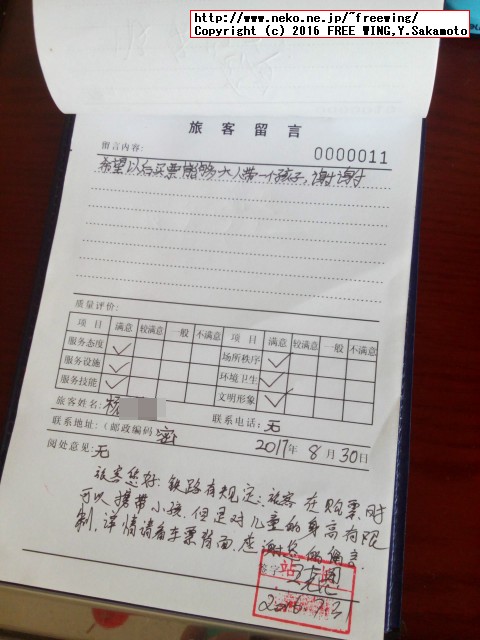 http://www.neko.ne.jp/~freewing/
Copyright (c) 2016 FREE WING,Y.Sakamoto
旅客留言
留言内容: 0000011
希望以后买票能够大人带一个孩子,谢谢
质量评价:
项目 满意 较满意 一般 不满意 项目 满意 较满意 一般 不满意
服务态度 场所秩序
服务设施 环境卫生
服务技能 文明形象
旅客姓名: 杨 联系电话: 无
联系地址:(邮政编码 密 2017年8月30日
阅处意见: 无
旅客您好:铁路有规定:旅客在购票时
可以携带小孩,但是对儿童的身高有限
制,详情请看车票背面,应谢您的留言.
签字: